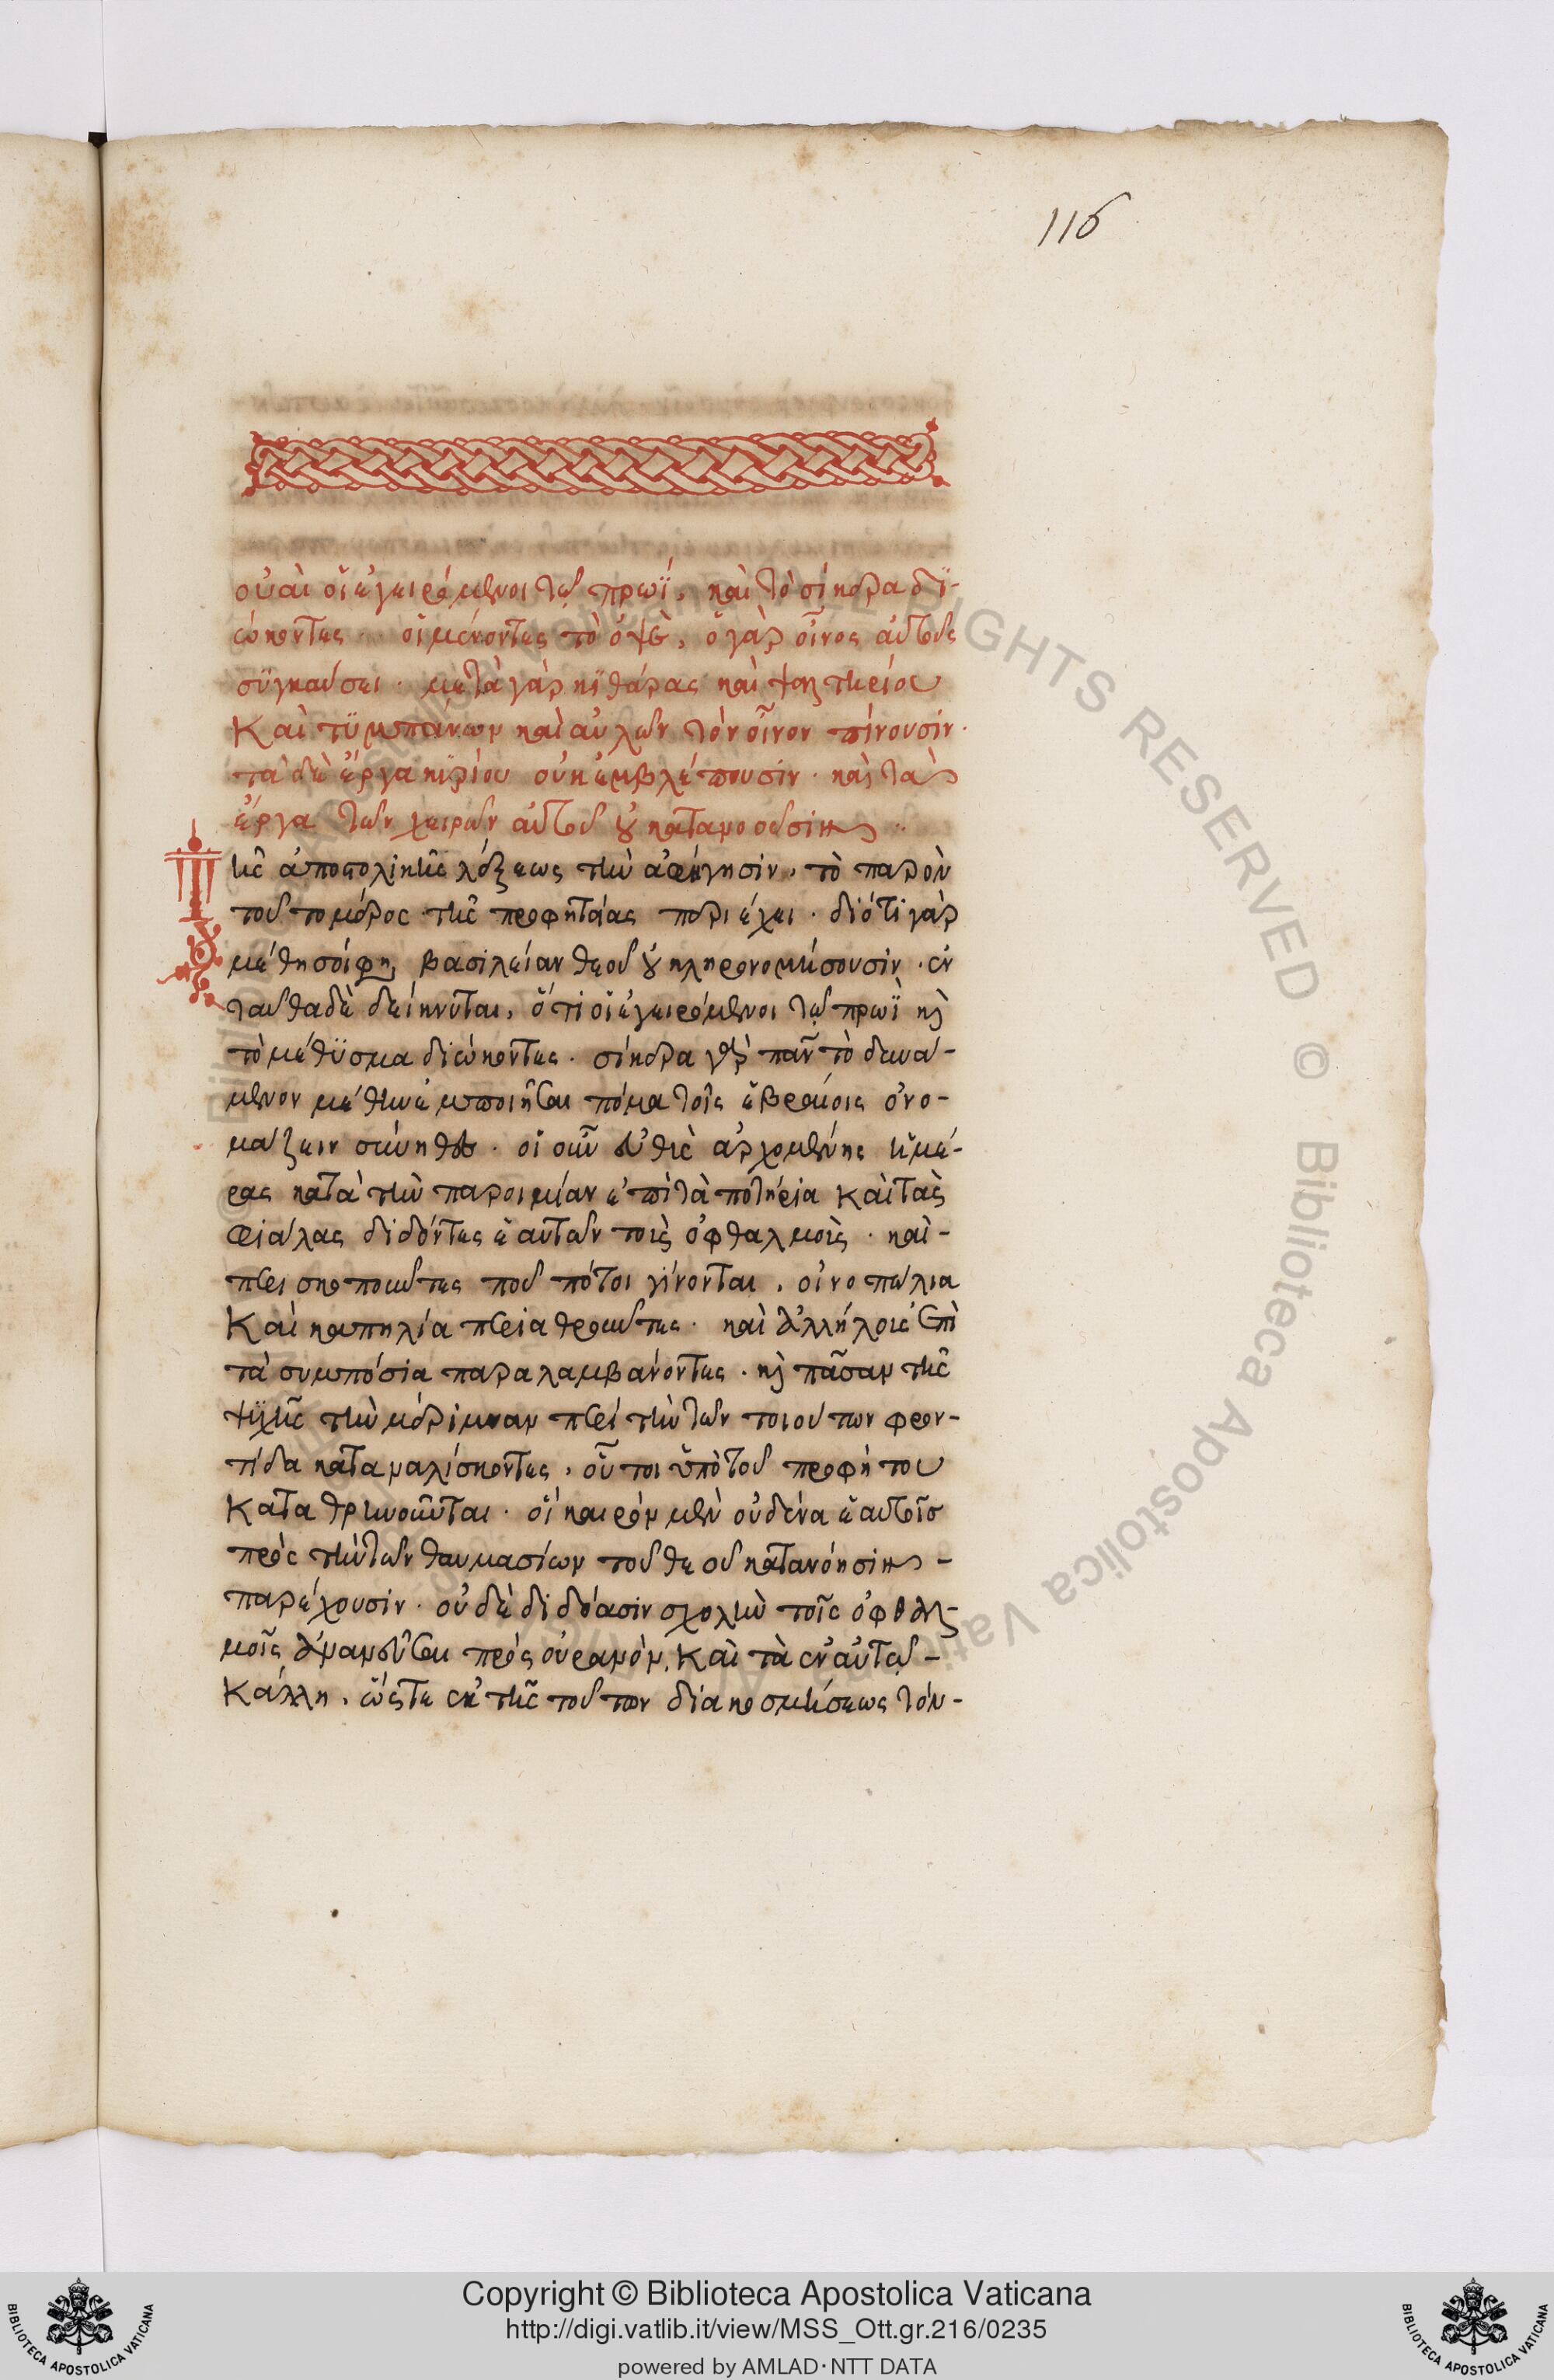 116
οὐαὶ οἱ ἐγειρόμενοι τῶ πρωῒ, καὶ τὸ σίκερα δϊ-
ώκοντες · οἱ μένοντες τὸ ὀψὲ, ὁ γὰρ οἶνος αὐτοὺς
σϋγκαύσει · μετὰ γὰρ κϊθάρας καὶ ψαλτηρίου
Καὶ τϋμπάνων καὶ αὐλῶν τὸν οἶνον πίνουσιν ·
τὰ δὲ ἔργα κϋρίου οὐκ ἐμβλέπουσιν · καὶ τὰ
ἔργα τῶν χειρῶν αὐτοῦ οὐ κατανοοῦσιν ··
Τῆς ἀποστολικῆς λέξεως τὴν ἀφήγησιν, τὸ παρὸν
τοῦτο μέρος τῆς προφητείας περιέχει · διότι γὰρ
μέθησοί φη, βασιλείαν θεοῦ οὐ κληρονομήσουσιν · ἐν
ταῦθα δὲ δείκνυται, ὅτι οἱ ἐγειρόμενοι τῶ πρωῒ καὶ
τὸ μέθϋσμα διώκοντες · σίκερα γὰρ πᾶν τὸ δυνά-
μενον μέθην ἐμποιῆσαι πόμα τοῖς ἑβραίοις ὀνο-
μάζειν σύνηθες · οἱ οὖν εὐθὺς ἀρχομένης ἡμέ-
ρας κατὰ τὴν παροιμίαν ἐπὶ τὰ ποτήρια Καὶ τὰς
φιάλας διδόντες ἑαυτῶν τοὺς ὀφθαλμοὺς · καὶ -
περισκοποῦντες ποῦ πότοι γίνονται, οἰνοπώλια
Καὶ καπηλία περιαθροῦντες · καὶ ἀλλήλους ἐπὶ
τὰ συμπόσια παραλαμβάνοντες · καὶ πᾶσαν τῆς
ψϋχῆς τὴν μέριμναν περὶ τὴν τῶν τοιούτων φρον-
τίδα καταναλίσκοντες, οὗτοι ὑπὸ τοῦ προφήτου
Καταθρηνοῦνται · οἳ καιρὸν μὲν οὐδένα ἑαυτοῖς
πρὸς τὴν τῶν θαυμασίων τοῦ θεοῦ κατανόησιν -
παρέχουσιν · οὐδὲ διδόασιν σχολὴν τοῖς ὀφθαλ-
μοῖς ἀναμεῦσαι πρὸς οὐρανὸν, Καὶ τὰ ἐν αὐτῶ -
Κάλλη, ὥστε ἐκ τῆς τούτων διακοσμήσεως τὸν -
© Biblioteca Apostolica Vaticana ALL RIGHTS RESERVED © Biblioteca Apostolica Vaticana
Copyright © Biblioteca Apostolica Vaticana
http://digi.vatlib.it/view/MSS_Ott.gr.216/0235
powered by AMLAD·NTT DATA
BIBLIOTECA APOSTOLICA VATICANA
BIBLIOTECA APOSTOLICA VATICANA